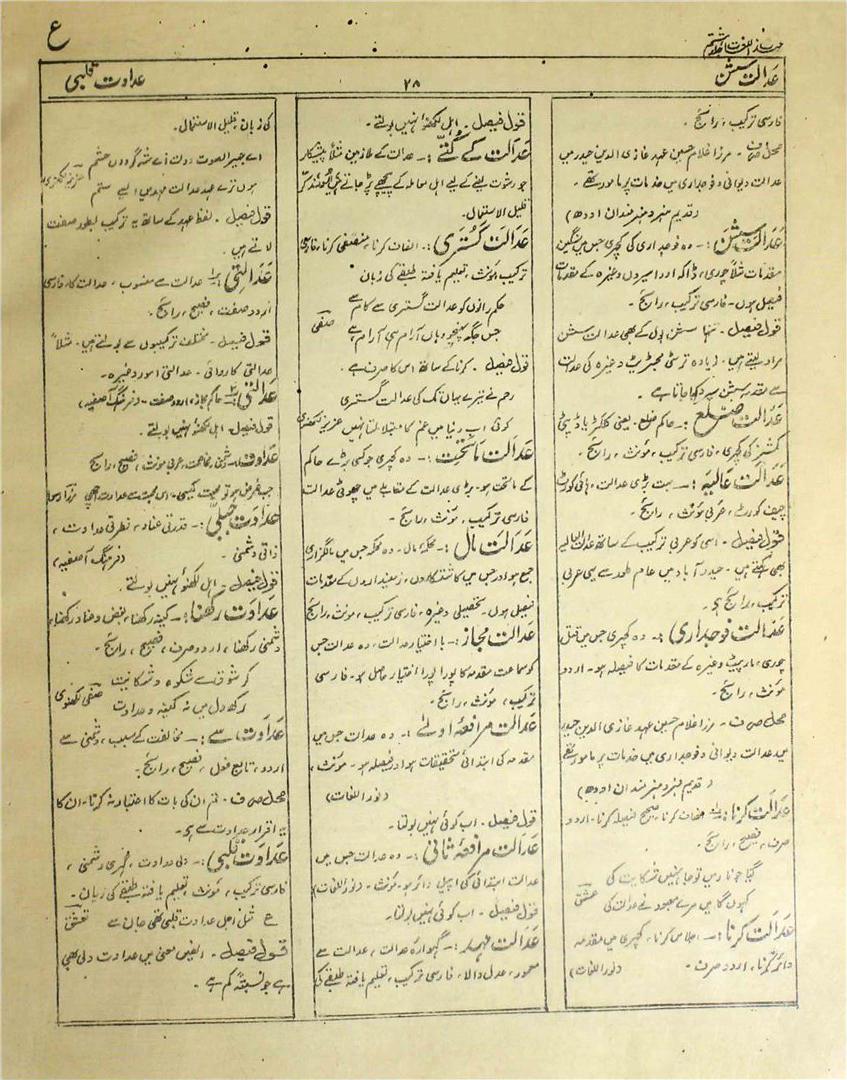 ع
مہذب اللغات جلد ہشتم
عدالت سشن
۲۸
عداوت قلبی
فارسی ترکیب، رائج۔
محل صرف۔ مرزا غلام حسین عہد غازی الدین حیدر میں
عدالت دیوانی و فوجداری میں خدمات پر مامور تھے۔
(قدیم ہنر و ہنرمندان اودھ)
عدالت سشن :۔ وہ فوجداری کی کچہری جس میں سنگین
مقدمات مثلاً چوری، ڈاکہ اور امیروں وغیرہ کے مقدمات
فیصل ہوں۔ فارسی ترکیب، رائج۔
قول فیصل۔ تنہا سشن بول کے بھی عدالت سشن
مراد لیتے ہیں۔ زیادہ تر سٹی مجسٹریٹ وغیرہ کی عدالت
سے مقدمہ سشن سپرد کیا جاتا ہے۔
عدالت ضلع :۔ حاکم ضلع۔ یعنی کلکٹر یا ڈپٹی
کمشنر کی کچہری، فارسی ترکیب، مؤنث، رائج۔
عدالت عالیہ :۔ بہت بڑی عدالت، ہائی کورٹ
چیف کورٹ، عربی مؤنث، رائج۔
قول فیصل۔ اسی کو عربی ترکیب کے ساتھ عدالت العالیہ
بھی کہتے ہیں۔ حیدرآباد میں عام طور سے یہی عربی
ترکیب رائج ہے۔
عدالت فوجداری :۔ وہ کچہری جس میں قتل
چوری، مارپیٹ وغیرہ کے مقدمات کا فیصلہ ہو۔ اردو
مؤنث، رائج۔
محل صرف۔ مرزا غلام حسین عہد غازی الدین حیدر
میں عدالت دیوانی و فوجداری میں خدمات پر مامور تھے
(قدیم ہنر و ہنرمندان اودھ)
عدالت کرنا :۔ انصاف کرنا، صحیح فیصلہ کرنا۔ اردو
صرف، فصیح، رائج۔
گیا جو داد میں تو جا نہیں شکایت کی
کہوں گا میں مرے معبود نے عدالت کی عشق
عدالت کرنا :۔ اجلاس کرنا، کچہری میں مقدمہ
دائر کرنا، اردو صرف۔ (نوراللغات)
قول فیصل۔ اہل لکھنؤ نہیں بولتے۔
عدالت کے کتّے :۔ عدالت کے ملازمین مثلاً پیشکار
جو رشوت لینے کے لیے اہل معاملہ کے پیچھے پڑ جاتے ہیں
قلیل الاستعمال۔
عدالت گستری :۔ انصاف کرنا، منصفی کرنا، فارسی
ترکیب مؤنث، تعلیم یافتہ طبقے کی زبان
حکمرانوں کو عدالت گستری سے کام ہے
جس جگہ پہنچو وہاں آرام ہی آرام ہے صفی
قول فیصل۔ کرنا کے ساتھ اس کا صرف ہے۔
رحم نے تیرے یہاں تک کی عدالت گستری
کوئی اب دنیا میں غم کا مبتلا ملتا نہیں عزیز لکھنوی
عدالت ماتحت :۔ وہ کچہری جو کسی بڑے حاکم
کے ماتحت ہو۔ بڑی عدالت کے مقابلے میں چھوٹی عدالت
فارسی ترکیب، مؤنث، رائج۔
عدالت مال :۔ محکمۂ مال۔ وہ محکمہ جس میں مالگزاری
جمع ہو اور جس میں کاشتکاروں، زمینداروں کے مقدمات
فیصل ہوں۔ تحصیلی وغیرہ، فارسی ترکیب، مؤنث، رائج
عدالت مجاز :۔ با اختیار عدالت، وہ عدالت جس
کو سماعت مقدمہ کا پورا پورا اختیار حاصل ہو۔ فارسی
ترکیب، مؤنث، رائج۔
عدالت مرافعۂ اولیٰ :۔ وہ عدالت جس میں
مقدمہ کی ابتدائی تحقیقات ہو اور فیصلہ ہو۔ مؤنث،
(نوراللغات)
قول فیصل۔ اب کوئی نہیں بولتا۔
عدالت مرافعۂ ثانی :۔ وہ عدالت جس میں
عدالت ابتدائی کی اپیل دائر ہو۔ مؤنث۔ (نوراللغات)
قول فیصل۔ اب کوئی نہیں بولتا۔
عدالت مہد :۔ گہوارۂ عدالت، عدالت سے
معمور، عدل والا، فارسی ترکیب، تعلیم یافتہ طبقے کی
کی زبان، قلیل الاستعمال۔
اے جہیر الصوت رونداے شہ گردوں حشم
ہوں ترے عہد عدالت مہد میں ایسے ستم عزیز لکھنوی
قول فیصل۔ لفظ عہد کے ساتھ یہ ترکیب بطور صفت
لاتے ہیں۔
عدالتی :۔ عدالت سے منسوب، عدالت کا، فارسی
اردو صفت، فصیح، رائج۔
قول فیصل۔ مختلف ترکیبوں سے بولتے ہیں۔ مثلاً
عدالتی کاروائی۔ عدالتی امور وغیرہ۔
عدالتی :۔ حاکم مجاز، اردو صفت۔ (فرہنگ آصفیہ)
قول فیصل۔ اہل لکھنؤ نہیں بولتے۔
عداوت :۔ دشمنی، مخاصمت، عربی مؤنث، فصیح، رائج
جب غرض ہو تو محبت کیسی۔ اس محبت سے عداوت اچھی مرزا رسوا
عداوت جبلی :۔ قدرتی عناد، فطرتی عداوت،
ذاتی دشمنی۔ (فرہنگ آصفیہ)
قول فیصل۔ اہل لکھنؤ نہیں بولتے۔
عداوت رکھنا :۔ کینہ رکھنا، بغض و عناد رکھنا،
دشمنی رکھنا، اردو صرف، فصیح، رائج۔
کر شوق سے شکوہ و شکایت
رکھ دل میں نہ کینہ و عداوت صفی لکھنوی
عداوت سے :۔ مخالفت کے سبب، دشمنی سے
اردو، تابع فعل، فصیح، رائج۔
محل صرف۔ تم ان کی بات کا اعتبار نہ کرنا۔ ان کا
یہ اقرار عداوت سے ہے۔
عداوت قلبی :۔ دلی عداوت، گہری دشمنی،
فارسی ترکیب، مؤنث، تعلیم یافتہ طبقے کی زبان۔
ع مثل اجل عداوت قلبی تھی جان سے تعشق
قول فیصل۔ انھیں معنی میں عداوت دلی بھی
ہے جو نسبتۃً کم ہے۔